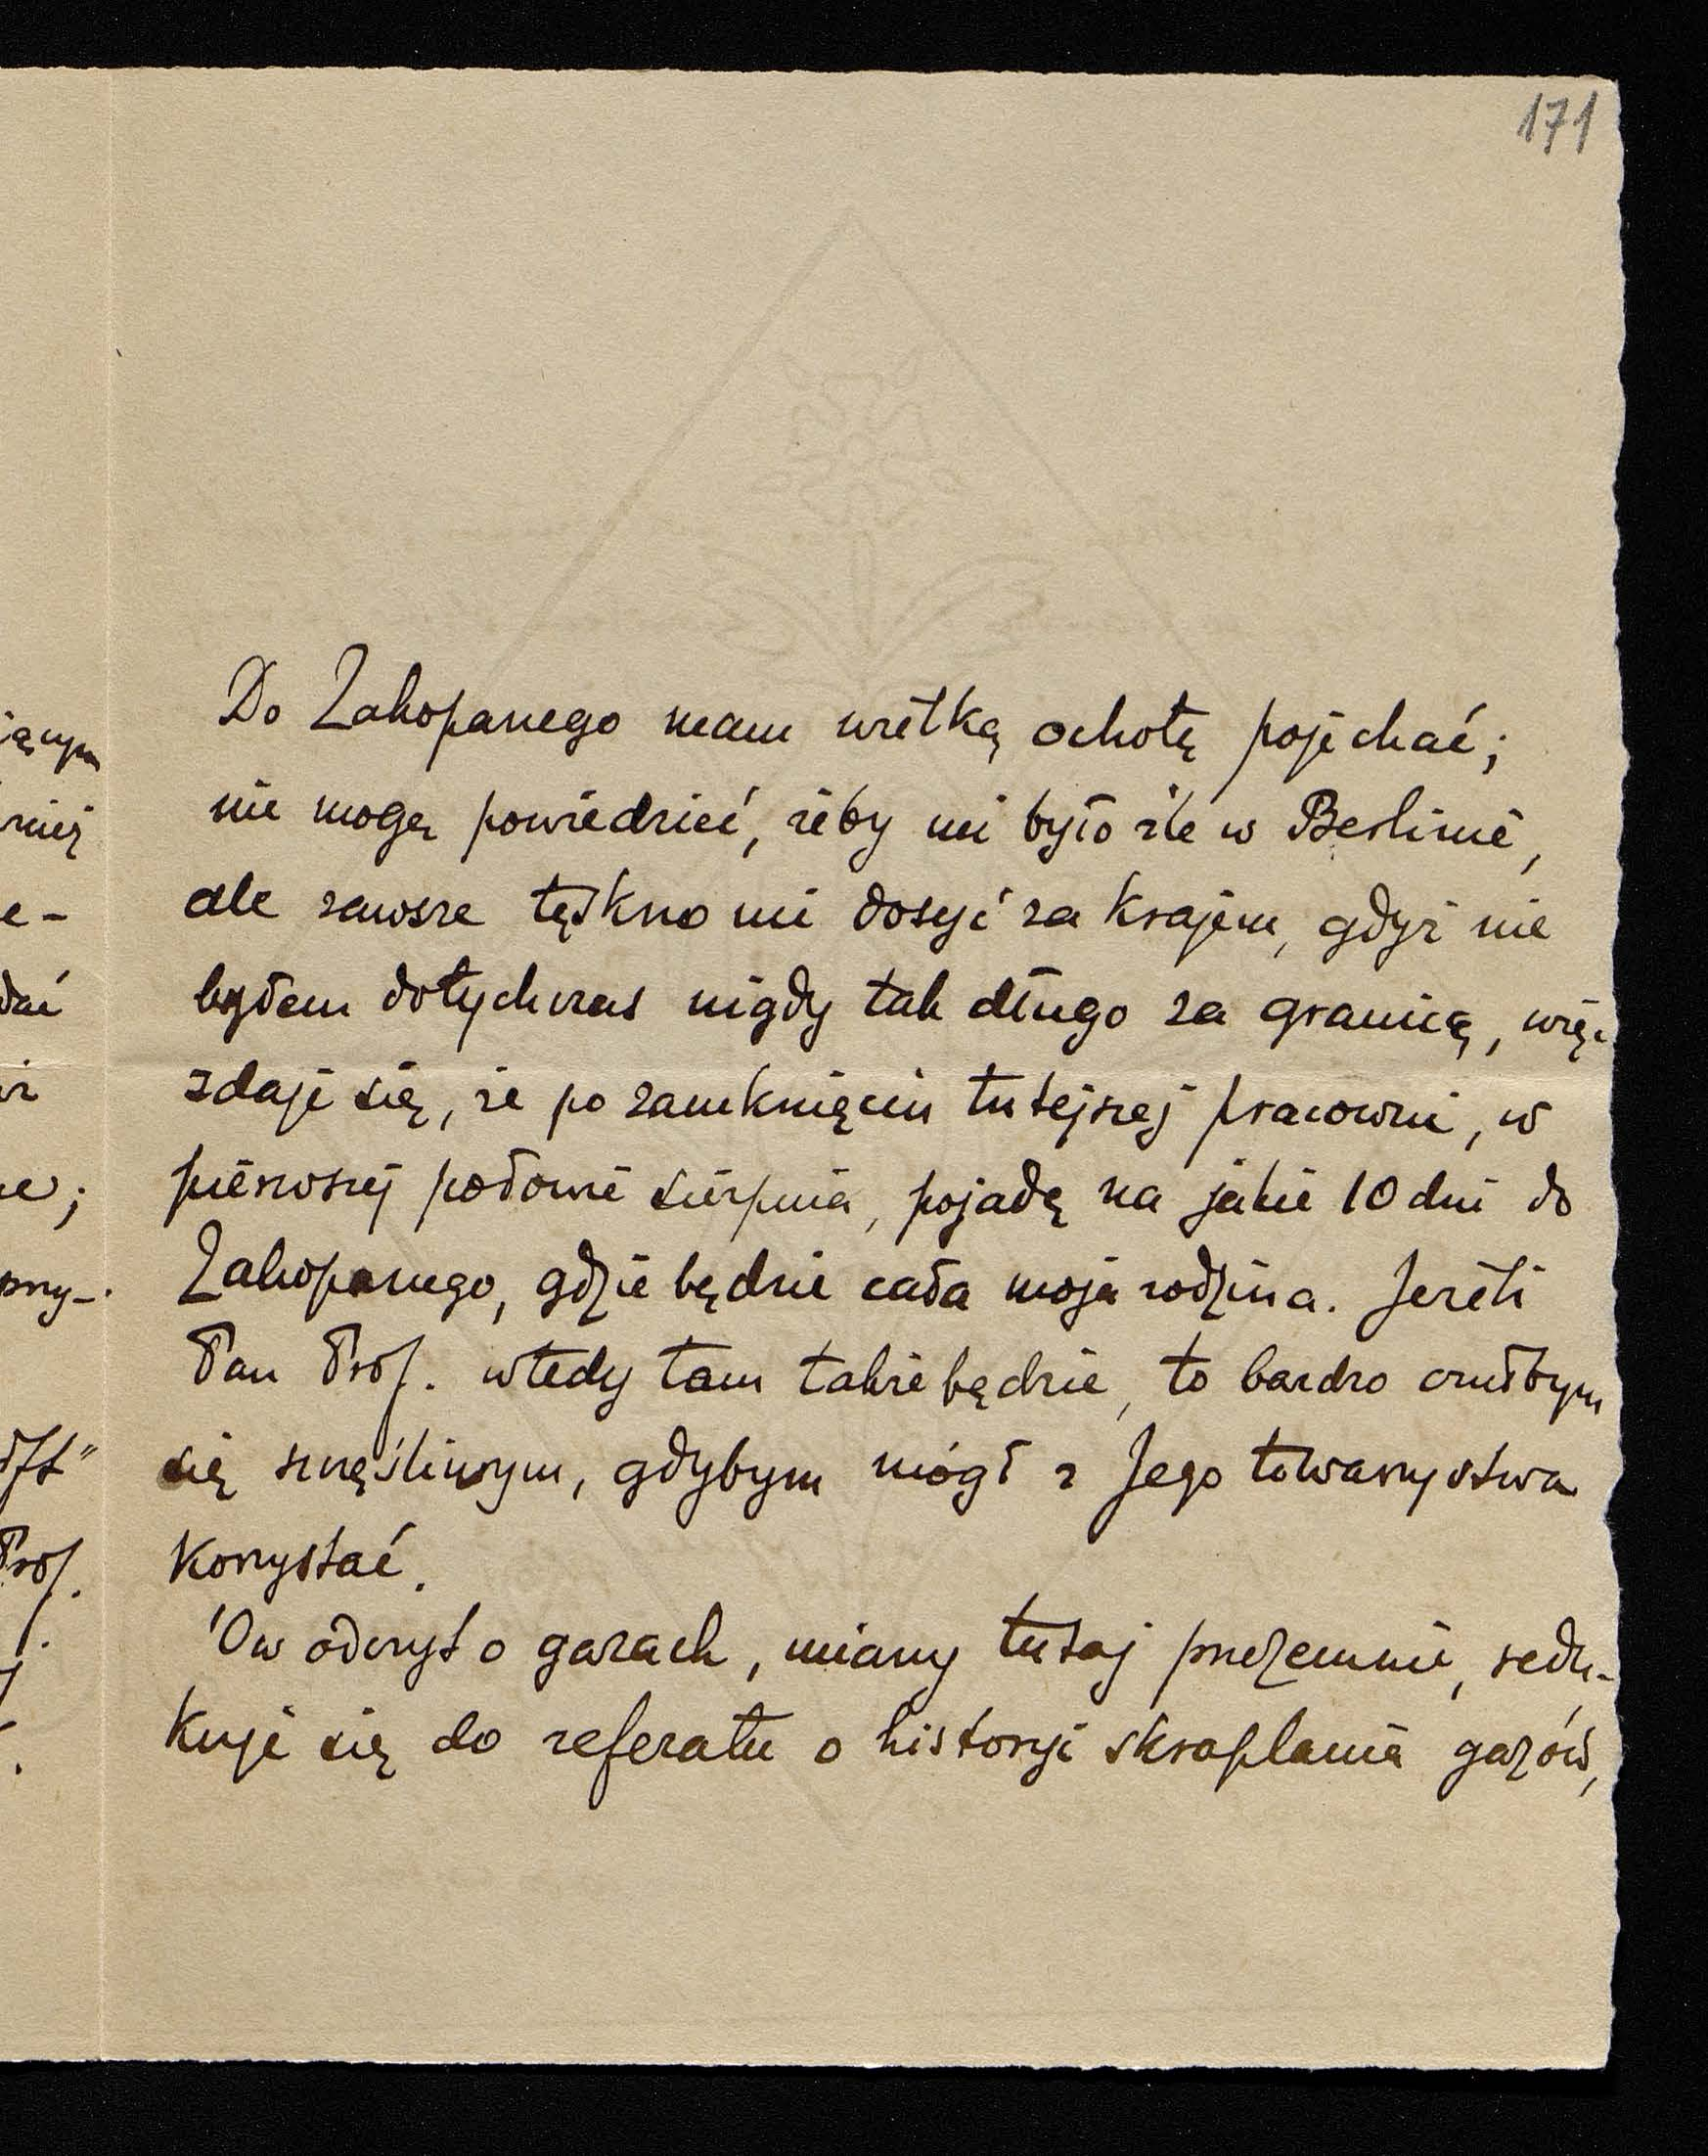 171
Do Zakopanego mam wielką ochotę pojechać;
nie mogę powiedzieć, żeby mi było źle w Berlinie,
ale zawsze tęskno mi dosyć za krajem, gdyż nie
byłem dotychczas nigdy tak długo za granicą, więc
zdaje się, że po zamknięciu tutejszej pracowni, w
pierwszej połowie sierpnia, pojadę na jakie 10 dni do
Zakopanego, gdzie będzie cała moja rodzina. Jeżeli
Pan Prof. wtedy tam także będzie, to bardzo czułbym
się szczęśliwym, gdybym mógł z Jego towarzystwa
korzystać.
Ów odczyt o gazach, miany tutaj przezemnie, redu-
kuje się do referatu o historyi skraplania gazów,